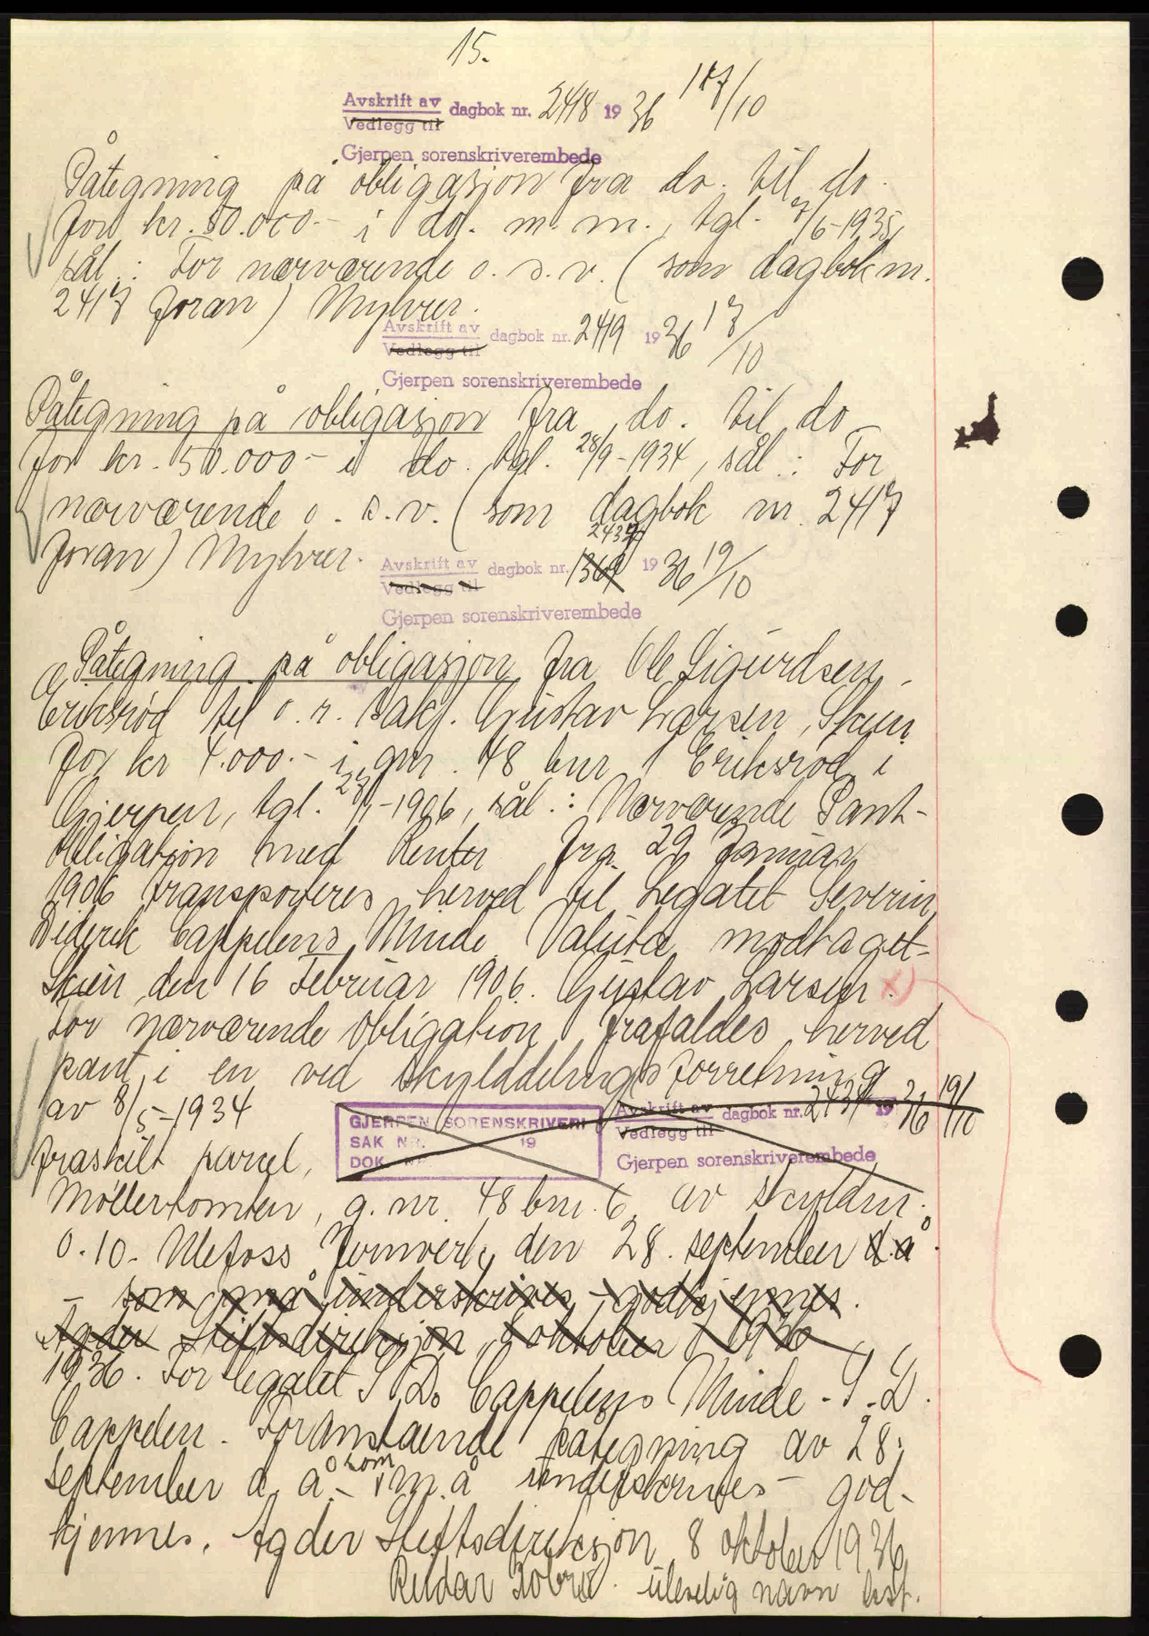 15.
Avskrift av
Vedlegg til dagbok nr. 2418 1936 17/10
Gjerpen sorenskriverembede
Påtegning på obligasjon fra do. til do.
for kr. 50.000.- i do. m. m., tgl. 7/6-1935,
sål.: For nærværende o. s. v. (som dagbok nr.
2417 foran) Mylver.
Avskrift av
Vedlegg til dagbok nr. 2419 1936 17/10
Gjerpen sorenskriverembede
Påtegning på obligasjon fra do. til do
for kr. 50.000- i do. tgl. 28/9-1934, sål.: For
nærværende o. s. v. (som dagbok nr. 2417
foran) Mylver.
2437
Avskrift av
Vedlegg til dagbok nr. 1369 1936 19/10
Gjerpen sorenskriverembede
Påtegning på obligasjon fra Ole Sigurdsen
Eriksrød til o. r. sakf. Gustav Larsen, Skien
for kr 4.000.- i gnr. 48 bnr 1 Eriksrød i
Gjerpen, tgl. 27/1-1906, sål.: Nærværende Pant-
obligation med Renter fra 29 Januar
1906 transporteres herved til Legatet Severin
Diderik Cappelens Minde Valuta modtaget-
Skien den 16 Februar 1906. Gustav Larsen. x)
For nærværende obligation frafaldes herved
pant i en ved skylddelingsforretning
av 8/5-1934
GJERPEN SORENSKRIVERI
SAK NR. 19
DOK. NR.
Avskrift av
Vedlegg til dagbok nr. 2437 1936 19/10
Gjerpen sorenskriverembede
fraskilt parcel,
Møllertomten, g. nr. 48 bnr. 6 av skyldnr.
0.10. Ulefoss Jernverk, den 28. september d. å.
- som m å underskrives - godkjennes.
Agder Stiftsdireksjon, 8 oktober 1936
1936. For legatet S D. Cappelens Minde - S. D.
Cappelen. Foranstående påtegning av 28.
september d. å - som m. å underskrives - god-
kjennes. Agder Stiftsdireksjon 8 oktober 1936
Reidar uleselig navn kst.